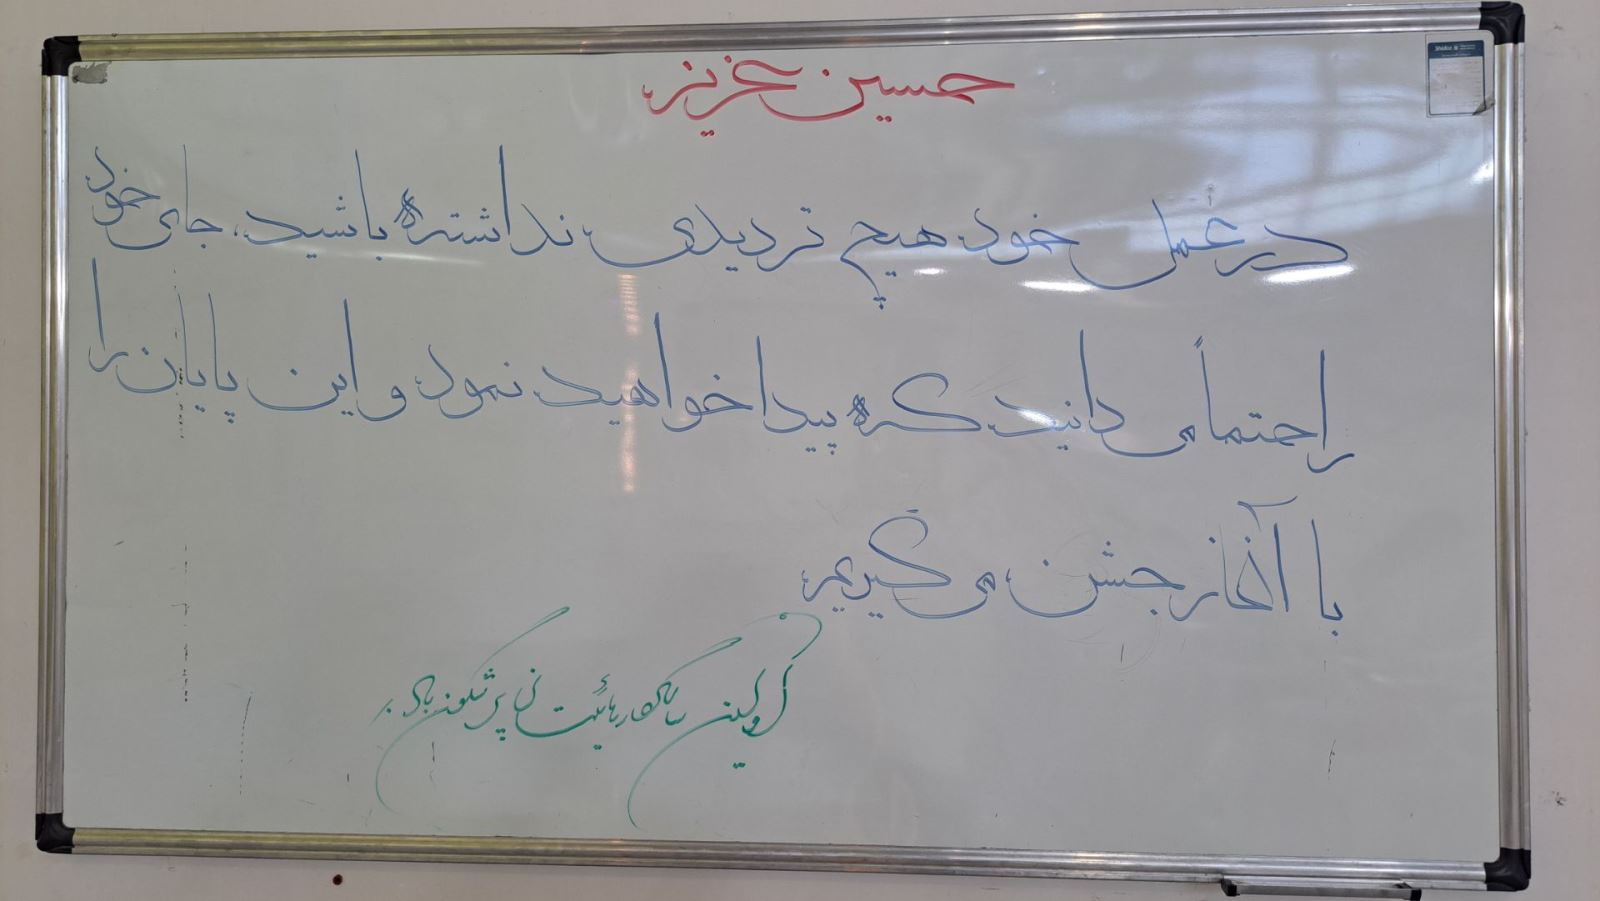 حسین عزیز
در عمل خود هیچ تردیدی نداشته باشید، جای خود
را حتماً می دانید که پیدا خواهید نمود و این پایان را
با آغاز جشن می گیریم
اولین سالگرد رهائیت پرشگون باد